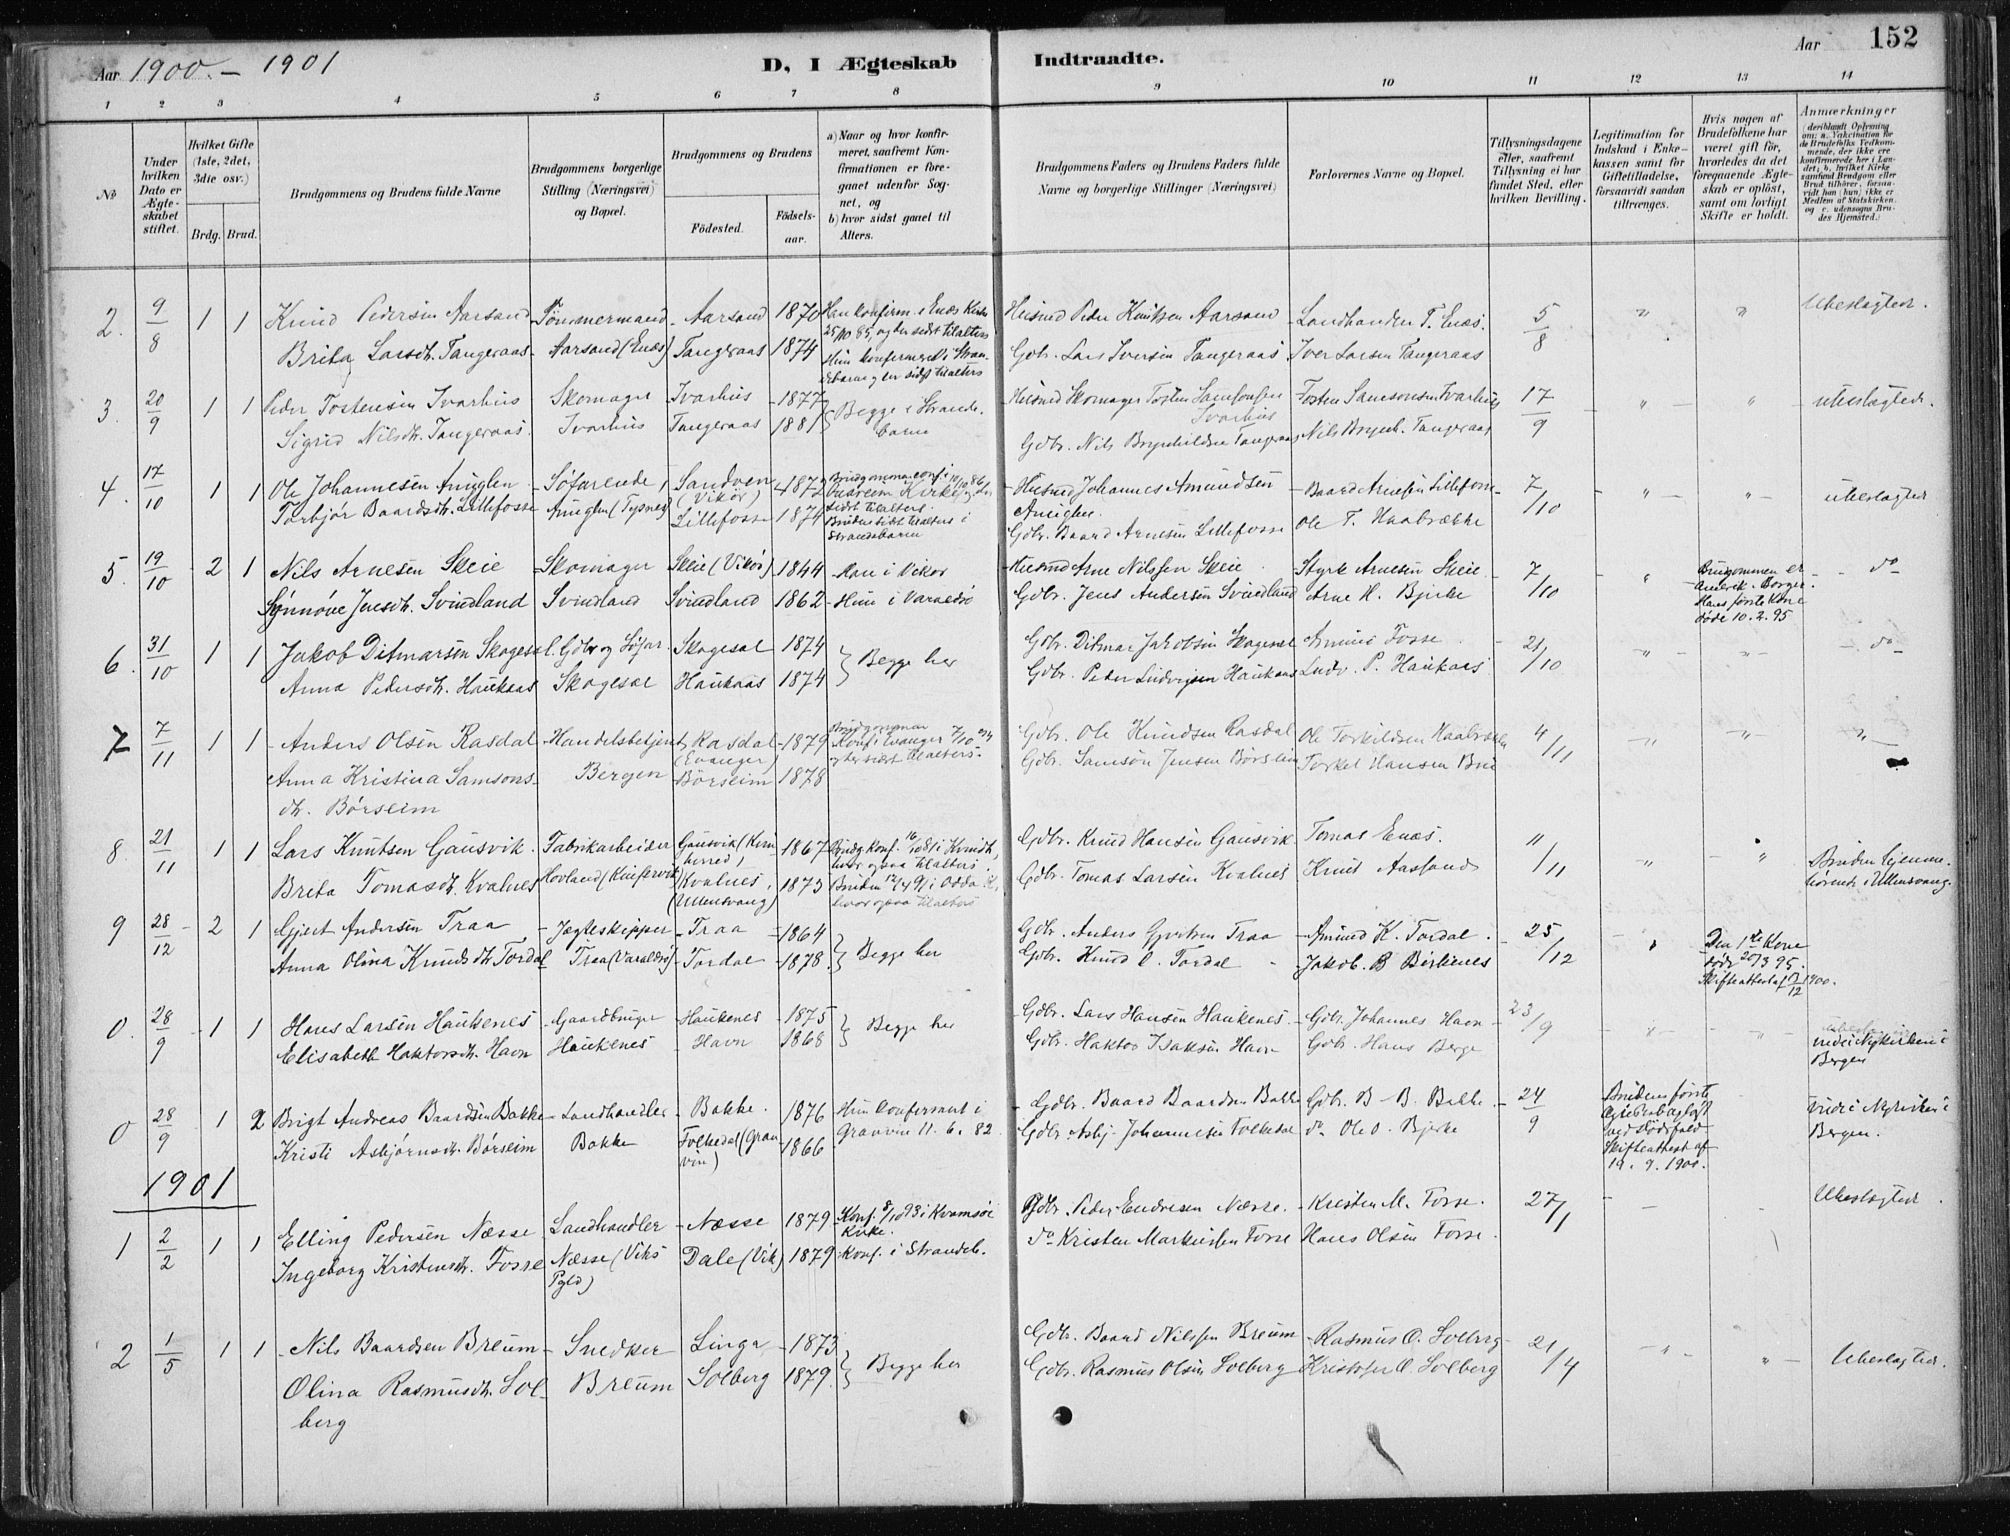 Aar 1900. - 1901
D, I Ægteskab Indtraadte.
Aar 152
1 2 3 4 5 6 7 8 9 10 11 12 13 14
No
Under hvilken Dato er Ægteskabet stiftet.
Hvilket Gifte (1ste, 2det, 3die osv.)
Brdg. Brud.
Brudgommens og Brudens fulde Navne
Brudgommens borgerlige Stilling (Næringsvei) og Bopæl.
Brudgommens og Brudens
Fødested.
Fødselsaar.
a) Naar og hvor konfirmeret, saafremt Konfirmationen er foregaaet udenfor Sognet, og
b) hvor sidst gaaet til Alters.
Brudgommens Faders og Brudens Faders fulde Navne og borgerlige Stillinger (Næringsvei)
Forlovernes Navne og Bopæl.
Tillysningsdagene eller, saafremt Tillysning ei har fundet Sted, efter hvilken Bevilling.
Legitimation for Indskud i Enkekassen samt for Giftetilladelse, forsaavidt saadan tiltrænges.
Hvis nogen af Brudefolkene har været gift før, hvorledes da det foregaaende Ægteskab er opløst, samt om lovligt Skifte er holdt.
Anmærkninger (deriblandt Oplysning om: a. Vakcination for de Brudefolks Vedkommende, der ikke ere konfirmerede her i Landet; b. hvilket Kirkesamfund Brudgom eller Brud tilhører, forsaavidt han (hun) ikke er Medlem af Statskirken, og c. udensogns Brudes Hjemsted.)
2. 9/8 1 1 Knud Pedersen Aarsand Tømmermand Aarsand 1870 Han konfirm. i Enæs Kirke 25/10 85, og her sidst tilalters Husmd Peder Knutsen Aarsand Landhandler T. Enæs. 5/8 " " Ubeslagtede.
Brita Larsdtr. Tangeraas Aarsand (Enæs) Tangeraas 1874 Hun konfirmeret i Strandebarm og her sidst tilalters Gbr. Lars Iversen Tangeraas Iver Larsen Tangeraas
3. 20/9 1 1 Peder Tostensen Ivarhus Skomager Ivarhus 1877 Begge i Strandebarm Husmd Skomager Tosten Samsonsen Ivarhus Tosten Samsonsen Ivarhus 17/9 " " ubeslagtede.
Sigrid Nilsdtr. Tangeraas. Ivarhus Tangeraas 1881 Gdbr. Nils Brynhildsen Tangeraas Nils Brynh. Tangeraas
4. 17/10 1 1 Ole Johannesen Anuglen Søfarende, Sandven (Vikör) 1872 Brudgommen conf. i 10/10 86 Kirke Husmd Johannes Amundsen Anuglen. Baard Arnesen Lillefosse 7/10 " " ubeslagtede
Torbjør Baardsdtr. Lillefosse Anuglen (Tysnes) Lillefosse 1874 sidst tilalters. Bruden sidst tilalters i Strandebarm Gdbr. Baard Arnesen Lillefosse Ole T. Haabrække
5. 19/10 2 1 Nils Arnesen Skeie Skomager Skeie (Vikör) 1844 Han i Vikør Husmd Arne Nilssen Skeie Styrk Arnesen Skeie 7/10 " Brudgommen er Hans første Kone døde 10.2.95 do
Synnøve Jensdtr. Svindland Svindland Svindland 1862 Hun i Varaldsø Gdbr. Jens Andersen Svindland Arne H. Bjerke
6. 31/10 1 1 Jakob Ditmarsen Skogesel Gdbr og Søfar. Skogesel 1874 Begge her Gdbr. Ditmar Jakobsen Skogesel Amund Fosse 21/10 " " do
Anna Pedersdtr. Haukaas Skogesel Haukaas 1874 Gdbr. Peder Ludvigsen Haukaas Ludv. P. Haukaas
7 7/11 1 1 Anders Olsen Rasdal Handelsbetjent Rasdal (Evanger) 1879 Brudgommen Konf. i Evanger 7/10 94 og her sidst tilalters. Gdbr. Ole Knudsen Rasdal Ole Torkildsen Haabrekke 4/11 " " "
Anna Kristina Samsonsdtr. Børseim Bergen Børseim 1878 Gdbr. Samson Jensen Børseim Torkel Hansen Brie
8. 21/11 1 1 Lars Knutsen Gausvik. Fabrikarbeider Gausvik (Kinherred) 1867 Brudg. konf. 16/10 81 i Kvindh. hvor ogsaa tilalters Gdbr. Knud Hansen Gausvik. Tomas Enæs. 11/11 " " Bruden hjemmehørende i Ullensvang.
Brita Tomasdtr. Kvalnes Hovland (Kinservik) Kvalnes. (Ullensvang) 1873 Bruden 12/4 91 i Odda K. hvor ogsaa tilalters Gdbr. Tomas Larsen Kvalnes Knut Aassand
9 28/12 2 1 Gjert Andersen Traa Jægteskipper Traa 1864 Begge her Gdbr. Anders Gjertsen Traa Amund K. Tordal. 25/12 " Den 1ste Kone døde 20/3 95. Skifteattest af 1900.
Anna Olina Knudsdtr Tordal Traa (Varaldsø) Tordal 1878. Gdbr. Knud O. Tordal Jakob. B Birkenes
0. 28/9 1 1 Hans Larsen Haukenes Gaardbruger Haukenes 1875 Begge her Gdbr. Lars Hansen Haukenes Gdbr. Johannes Havn 23/9 " " " viede i Nykirken i Bergen
Elisabeth Haktorsdtr. Havn Haukenes Havn 1868 Gdbr. Haktor Isaksen Havn Gdbr. Hans Berge
0 28/9 1 2 Brigt Andreas Baardsen Bakke Landhandler Bakke. 1876 Hun konfirmeret i Graven 11. 6. 82. Gdbr. Baard Baardsen Bakke Gdbr. B. B. Bakke 24/9 Brudens første Ægteskab ophørt ved Dødsfald Skifteattest af 19. 9. 1900. Viede i Nykirken i Bergen.
Kristi Asbjørnsdtr. Børseim Bakke Folkedal (Graven) 1866 Gdbr. Asbj. Johannesen Folkedal do Ole O. Bjerke
1901
1 2/2 1 1 Elling Pedersen Næsse Landhandler Næsse 1879 Konf. 8/10 93 i Kvamsøi Kirke. Gdbr. Peder Endresen Næsse. Kristen M. Fosse. 27/1 Ubeslagtede.
Ingeborg Kristensdtr. Fosse Næsse (Viks Pgld) Dale (Vik) 1879 Konf. i Strandeb. do Kristen Markussen Fosse Hans Olsen Fosse.
2 1/5 1 1 Nils Baardsen Breum Snedker Linga 1873 Begge her Gdbr. Baard Nilssen Breum Rasmus O. Solberg 21/4 " " Ubeslagtede.
Olina Rasmusdtr. Solberg Breum Solberg 1879. Gdbr. Rasmus Olsen Solberg Kristofer O. Solberg